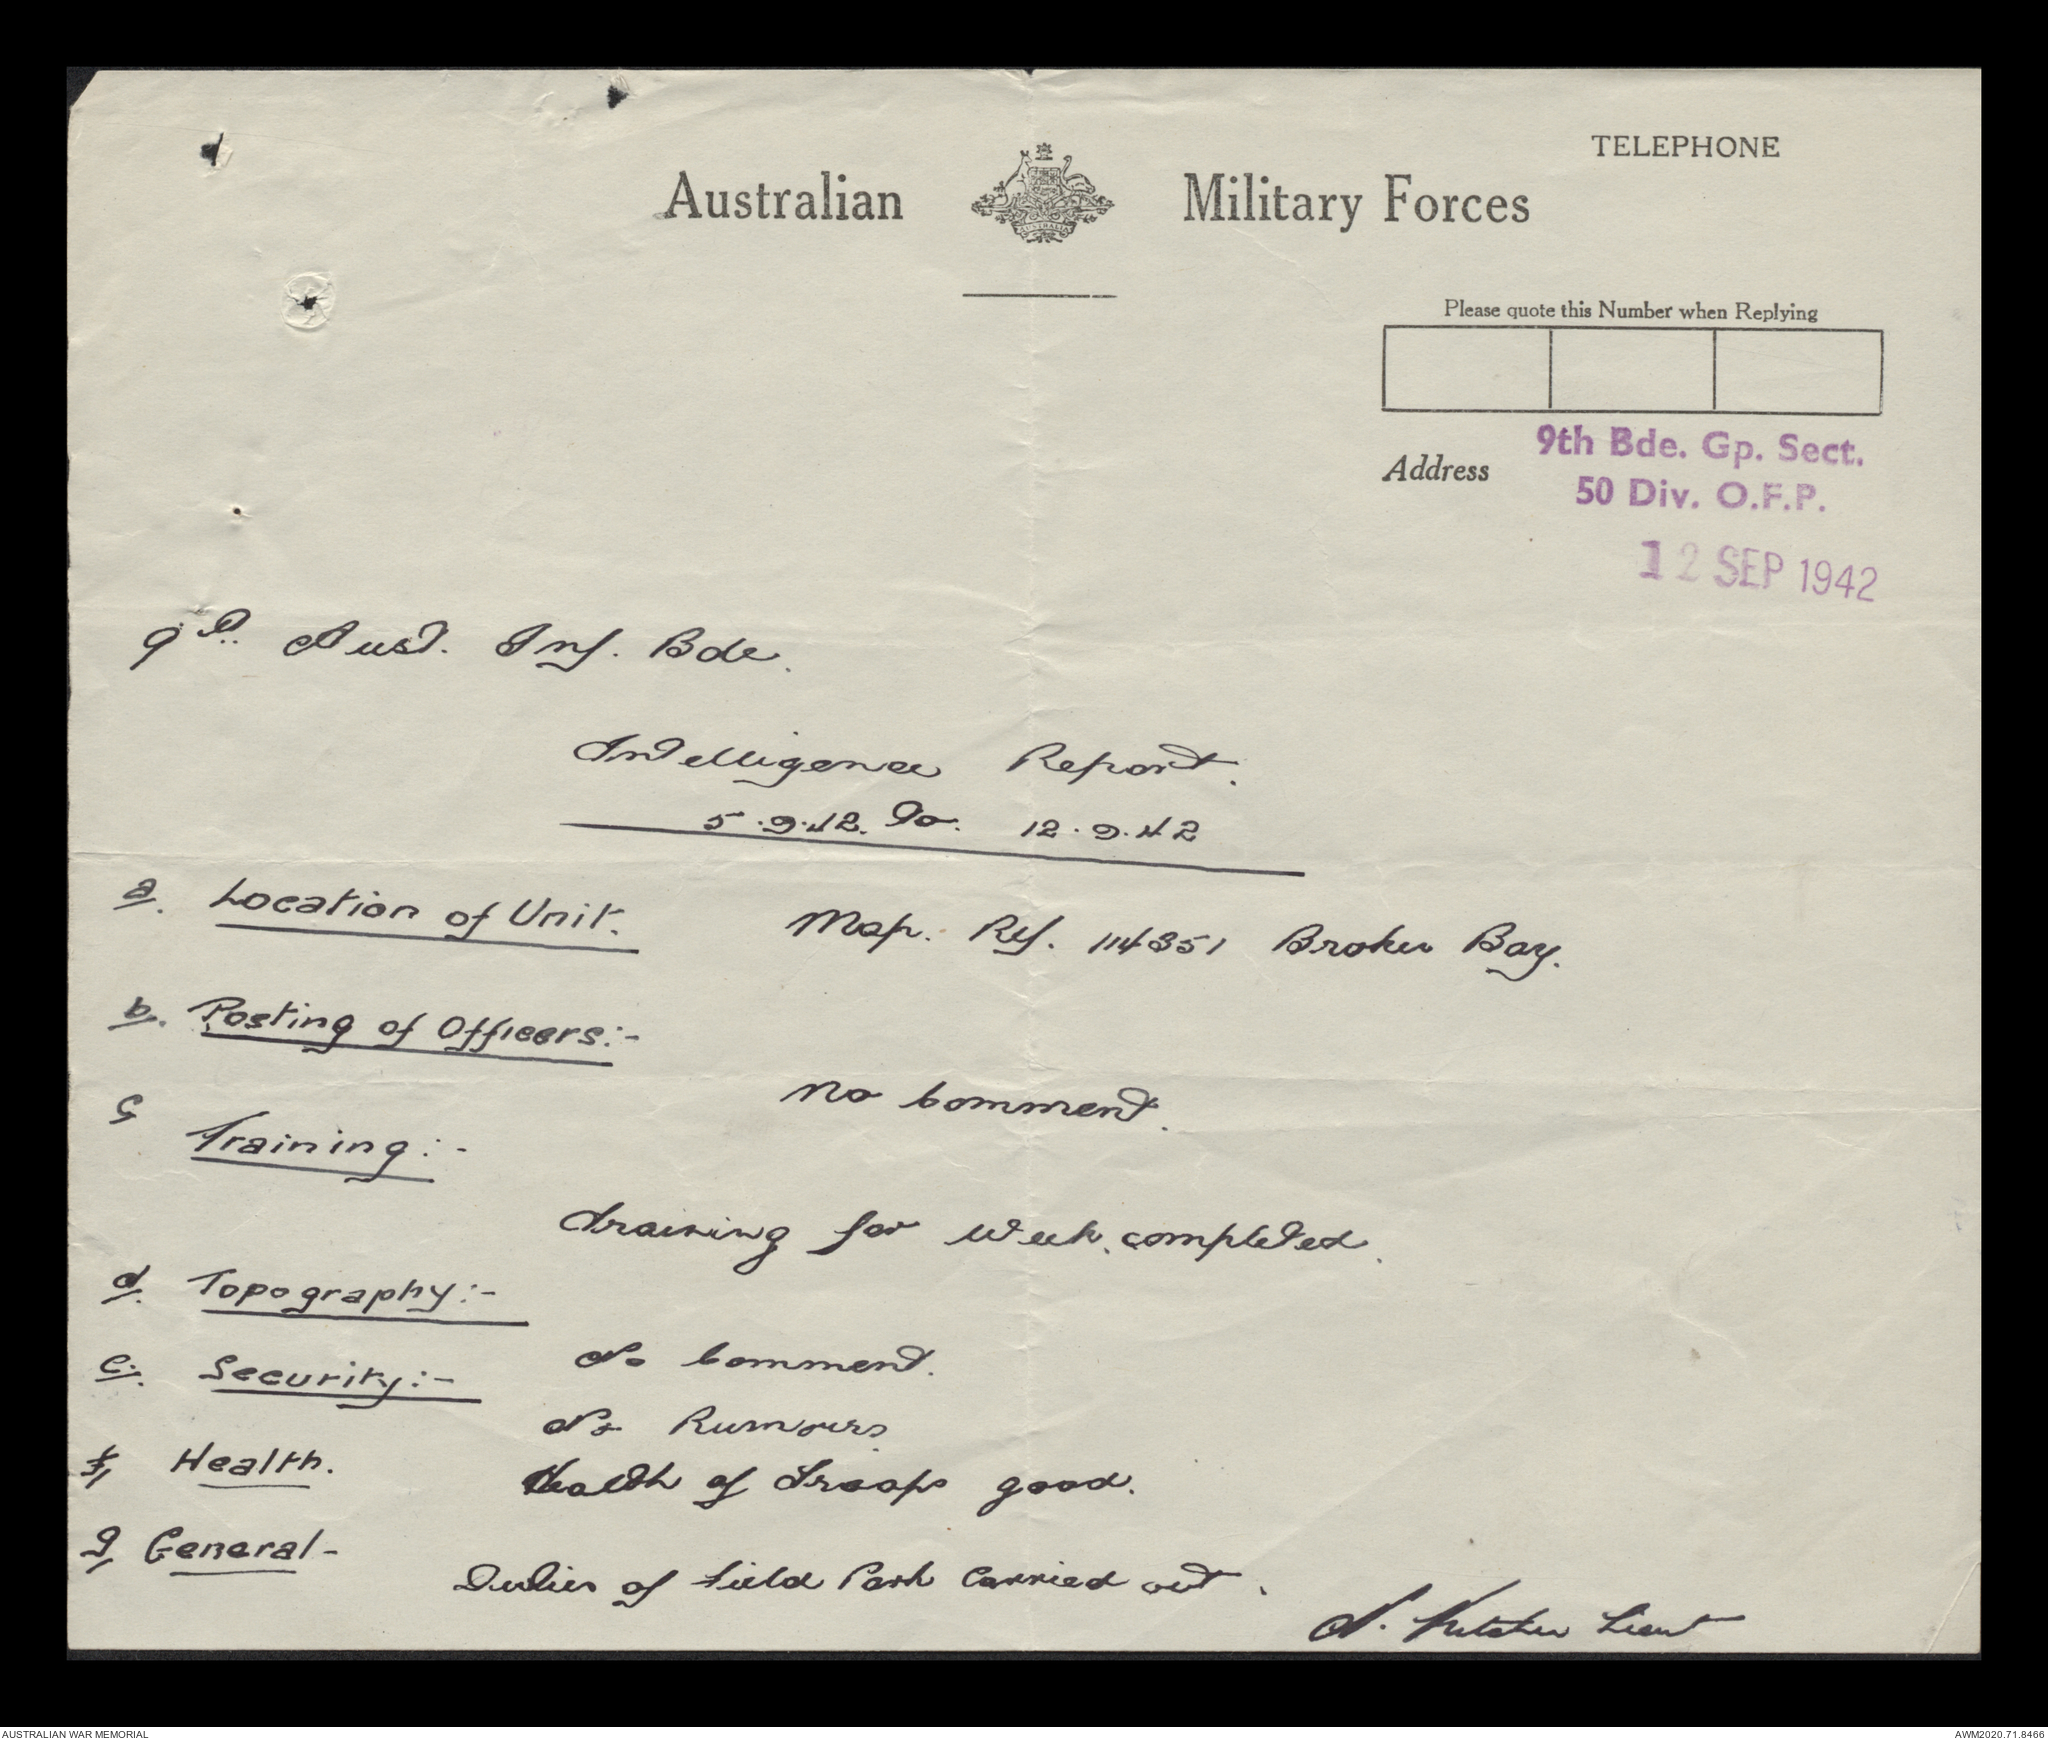 TELEPHONE
Australian Military Forces
AUSTRALIA
Please quote this Number when Replying
Address
9th Bde. Gp. Sect.
50 Div. O.F.P.
12 SEP 1942
9th. Aust. Inf. Bde.
Intelligence Report.
5.9.42. To. 12.9.42
a. Location of Unit. Map. Ref. 114351 Broken Bay.
b. Posting of Officers:-
No Comment.
c
Training:-
Training for week. completed.
d. Topography:-
No Comment.
e. Security:-
No Rumours.
f, Health.
Health of Troops good.
g, General-
Duties of Field Park Carried out.
Lieut
AUSTRALIAN WAR MEMORIAL
AWM2020.71.8466